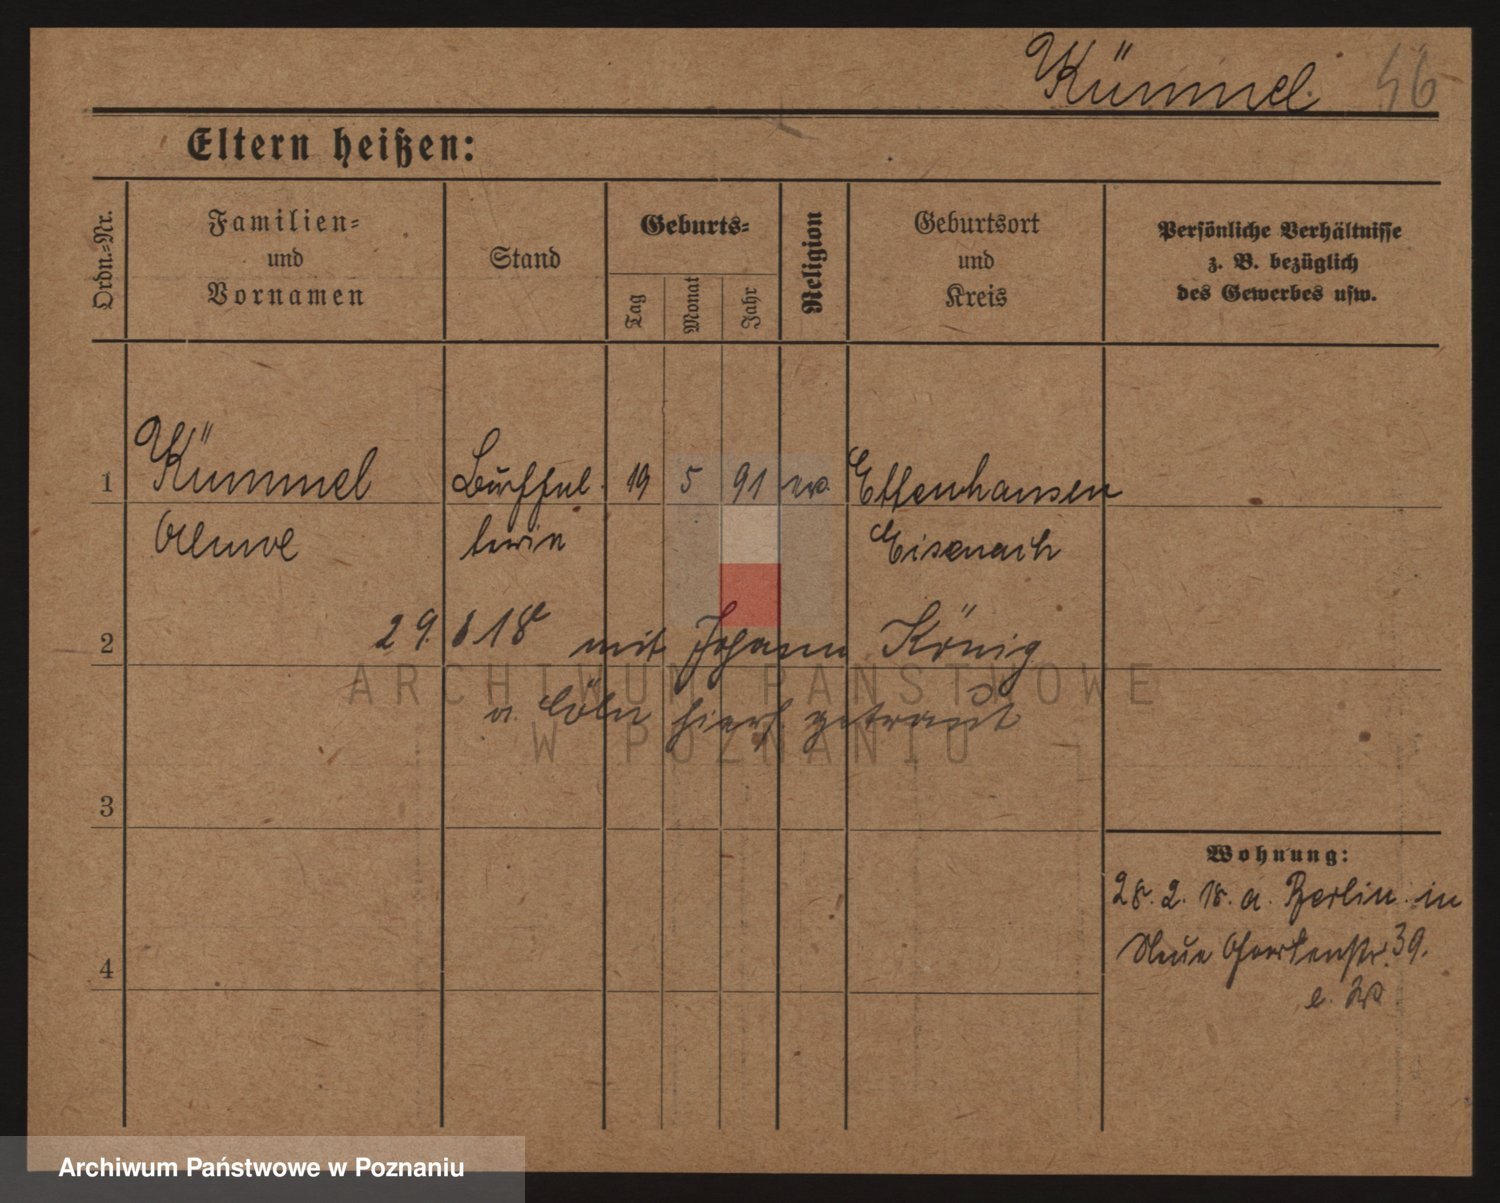 Kümmel 56
Eltern heißen:
Ordn.-Nr.
Familien-
und
Vornamen
Stand
Geburts-
Tag
Monat
Jahr
Religion
Geburtsort
und
Kreis
Persönliche Verhältnisse
z. B. bezüglich
des Gewerbes usw.
1 Kümmel Buchhal- 19 5 91 ev. Ettenhausen
terin Eisenach
2 29. 6 18 mit Johann König
a. Cöln hier getraut
3
Wohnung:
28. 2. 18. a. Berlin in
Neue Gartenstr. 39.
4
ARCHIWUM PAŃSTWOWE
W POZNANIU
Archiwum Państwowe w Poznaniu